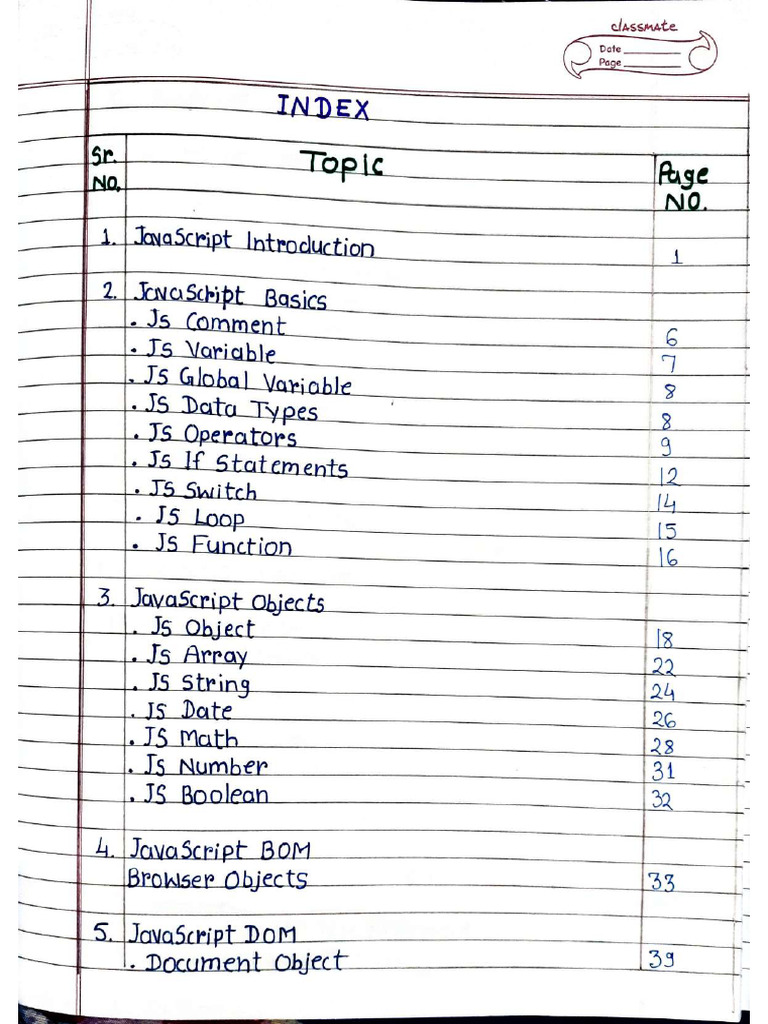 classmate
Date
Page
INDEX
Sr. No. Topic Page No.
1. JavaScript Introduction 1
2. JavaScript Basics
. Js Comment 6
. Js Variable 7
. JS Global Variable 8
. JS Data Types 8
. JS Operators 9
. Js If Statements 12
. JS Switch 14
. JS Loop 15
. JS Function 16
3. JavaScript Objects
. Js Object 18
. Js Array 22
. JS String 24
. JS Date 26
. JS Math 28
. Js Number 31
. JS Boolean 32
4. JavaScript BOM
Browser Objects 33
5. JavaScript DOM
. Document Object 39